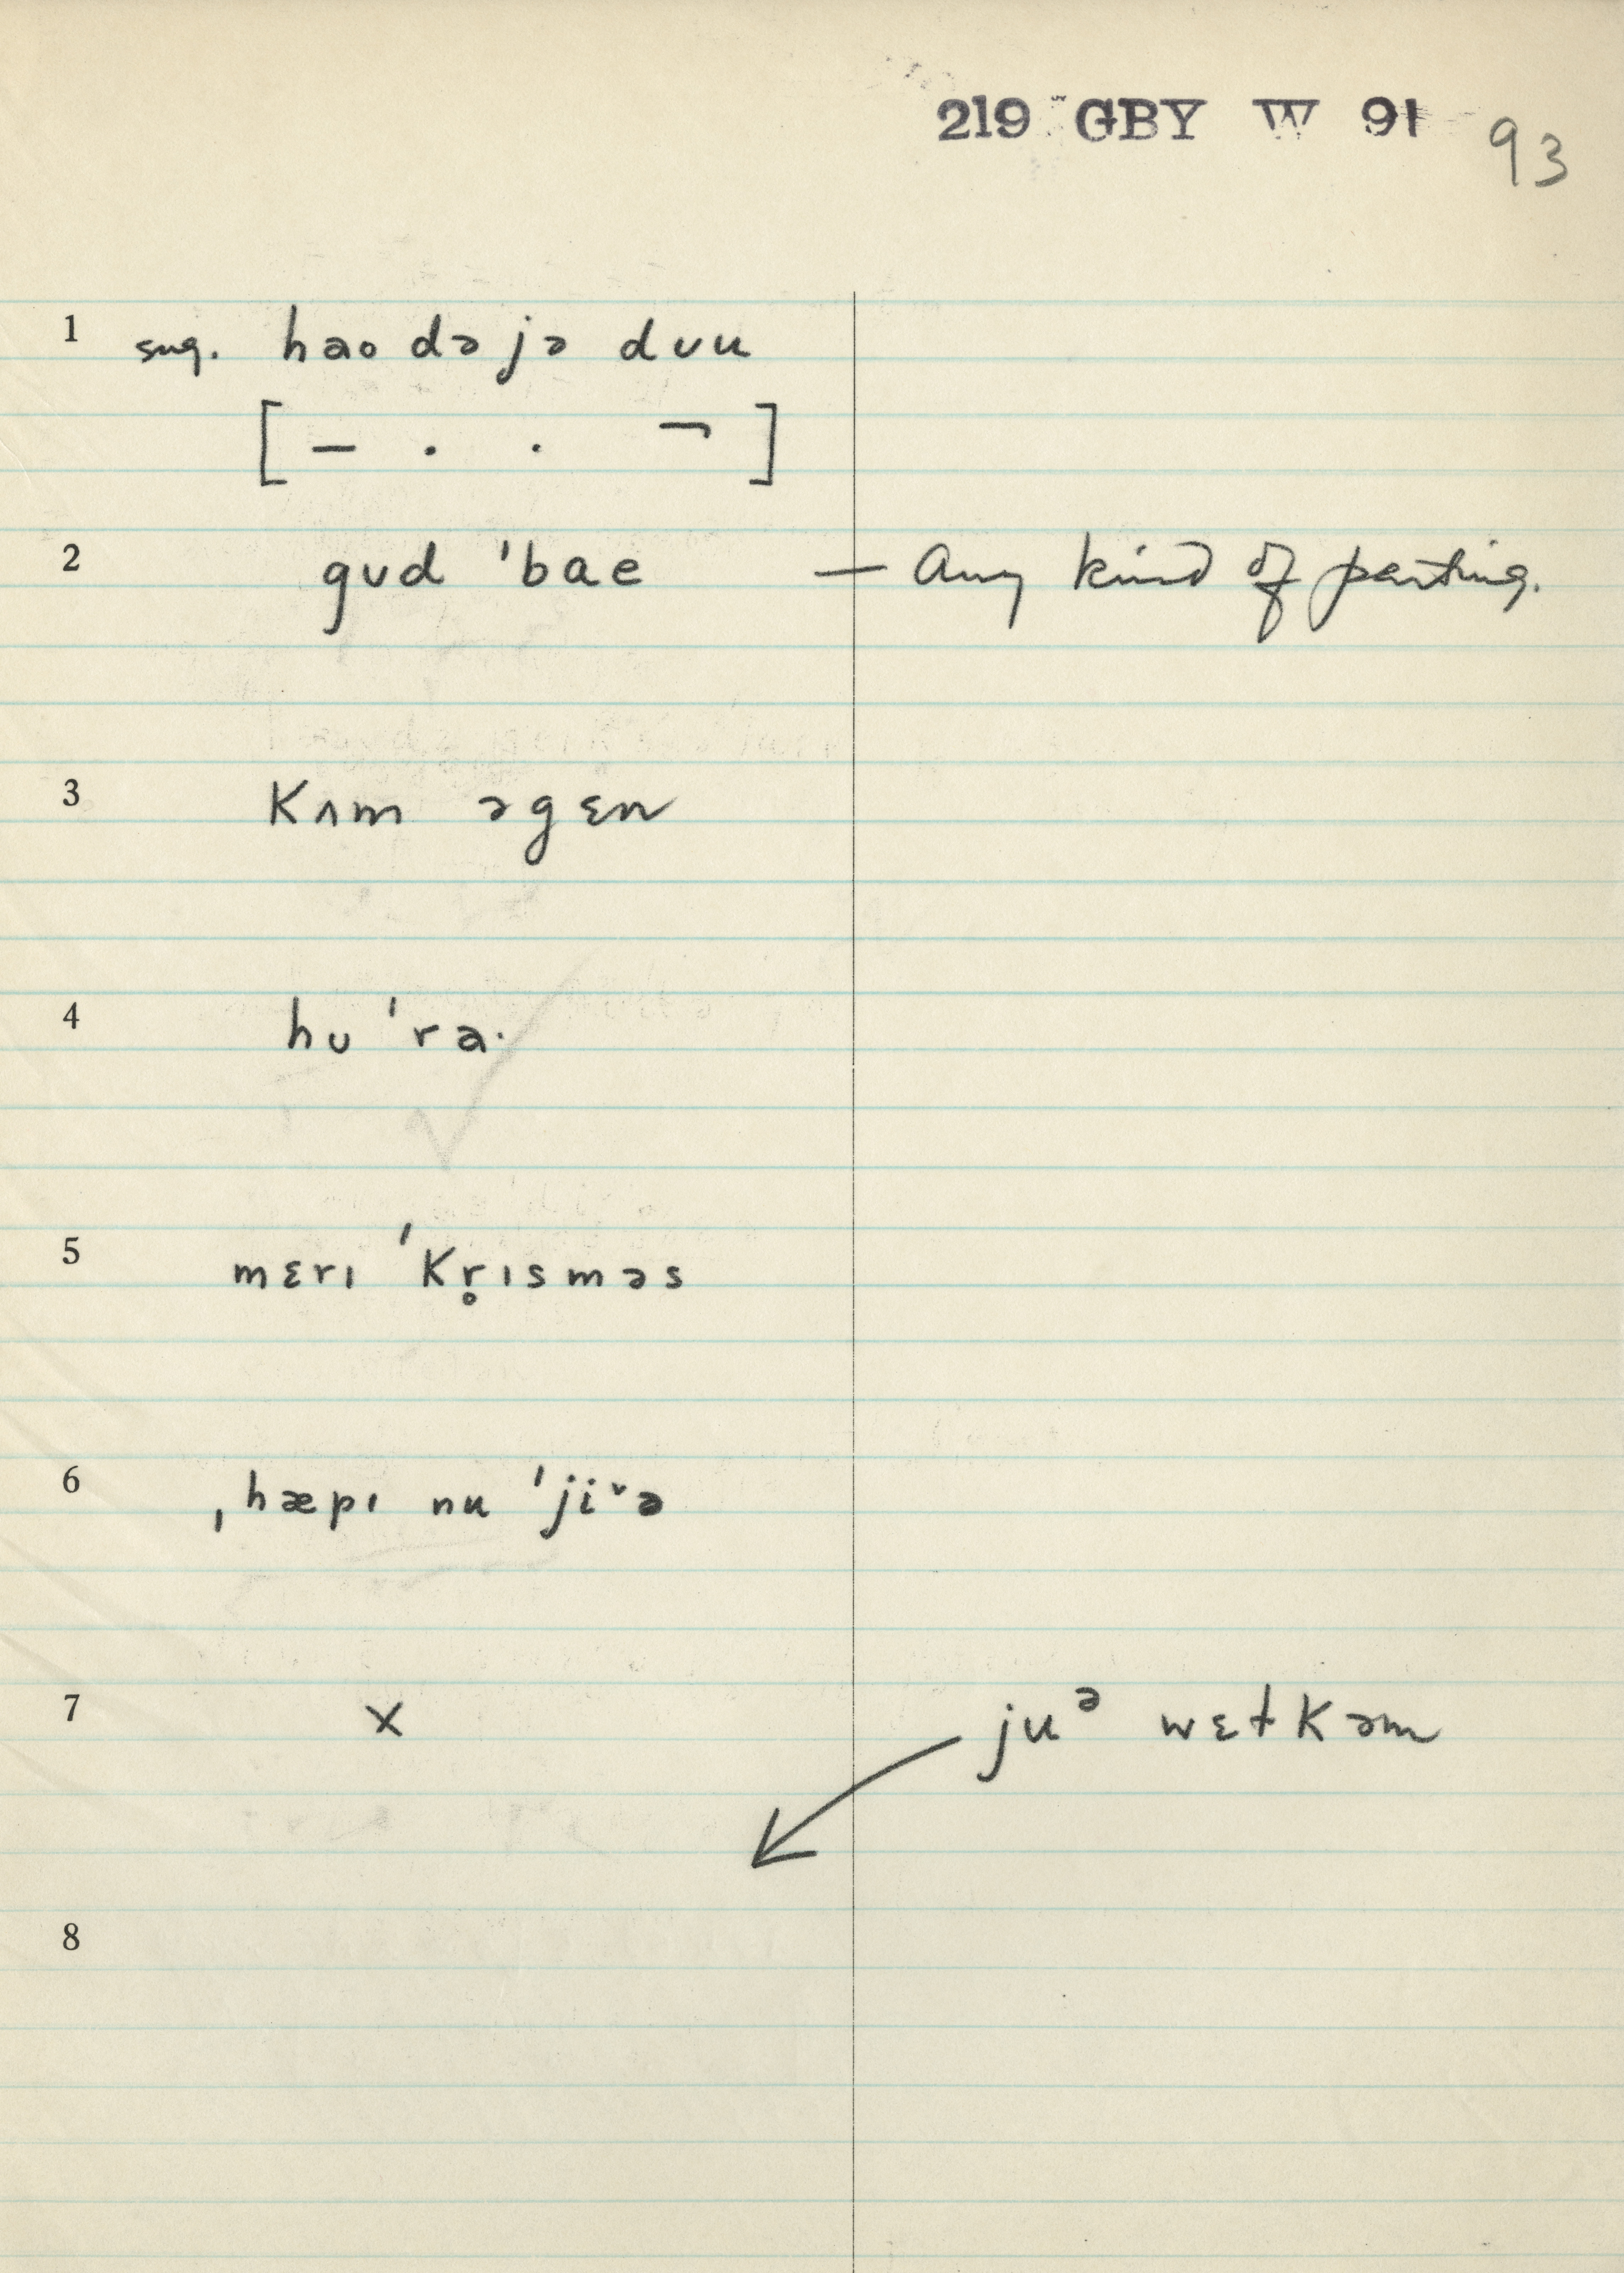 219 GBY W 91 93
1 sug. haodəjə dʊu
[ – . . ¬ ]
2 gʊd ˈbae — Any kind of parting.
3 Kʌm əgɛn
4 hʊˈra·
5 mɛrɪ ˈKr̥ɪsməs
6 ˌhæpɪ nu ˈjiˇə
7 x juᵊ wɛɫKəm
8